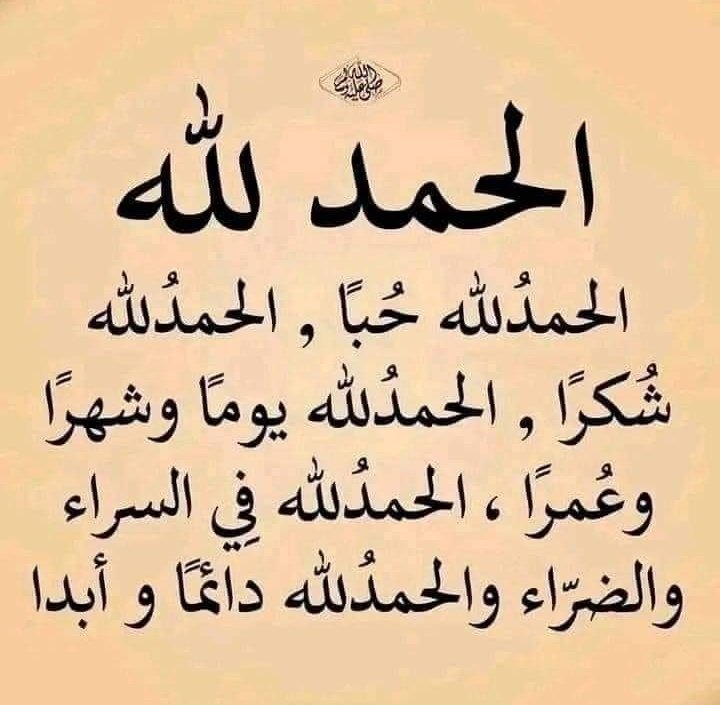 صلى الله عليه وسلم
الحمد لله
الحمدُلله حُبًا , الحمدُلله
شُكرًا , الحمدُلله يومًا وشهرًا
وعُمرًا ، الحمدُلله فِي السراء
والضرّاء والحمدُلله دائمًا و أبدا